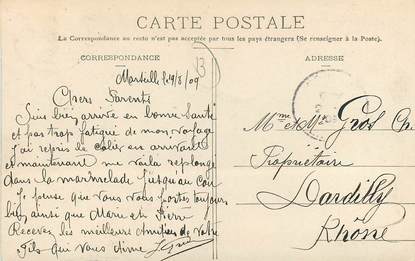 CARTE POSTALE
La Correspondance au recto n'est pas acceptée par tous les pays étrangers (Se renseigner à la Poste).
CORRESPONDANCE
ADRESSE
13
Marseille 19/8/09
Chers Parents
Suis bien arrivé en bonne santé
et pas trop fatigué de mon voyage
J'ai repris le collier en arrivant
et maintenant me voila replongé
dans la marmelade jusqu'au cou
Je pense que vous vous portez toujours
bien ainsi que Marie et Pierre
Recevez les meilleurs amitiés de votre
fils qui vous aime
Mme et Mr Gros
Propriétaire
Dardilly
Rhône